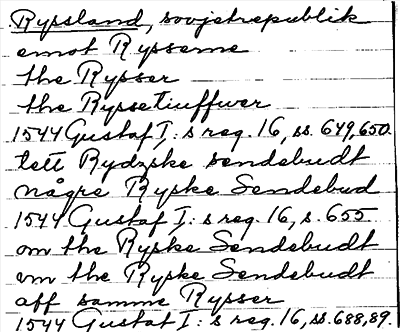 Ryssland, sovjetrepublik
emot Rysserne
the Rysser
the Ryssetiuffwer
1544 Gustaf I: s reg. 16, ss. 649,650.
tett Rydzske sendebudt
någre Ryske Sendebud
1544 Gustaf I: s reg. 16, s. 655
om the Ryske Sendebudt
um the Ryske Sendebudt
aff samme Rysser
1544 Gustaf I: s reg. 16, ss. 688,89.